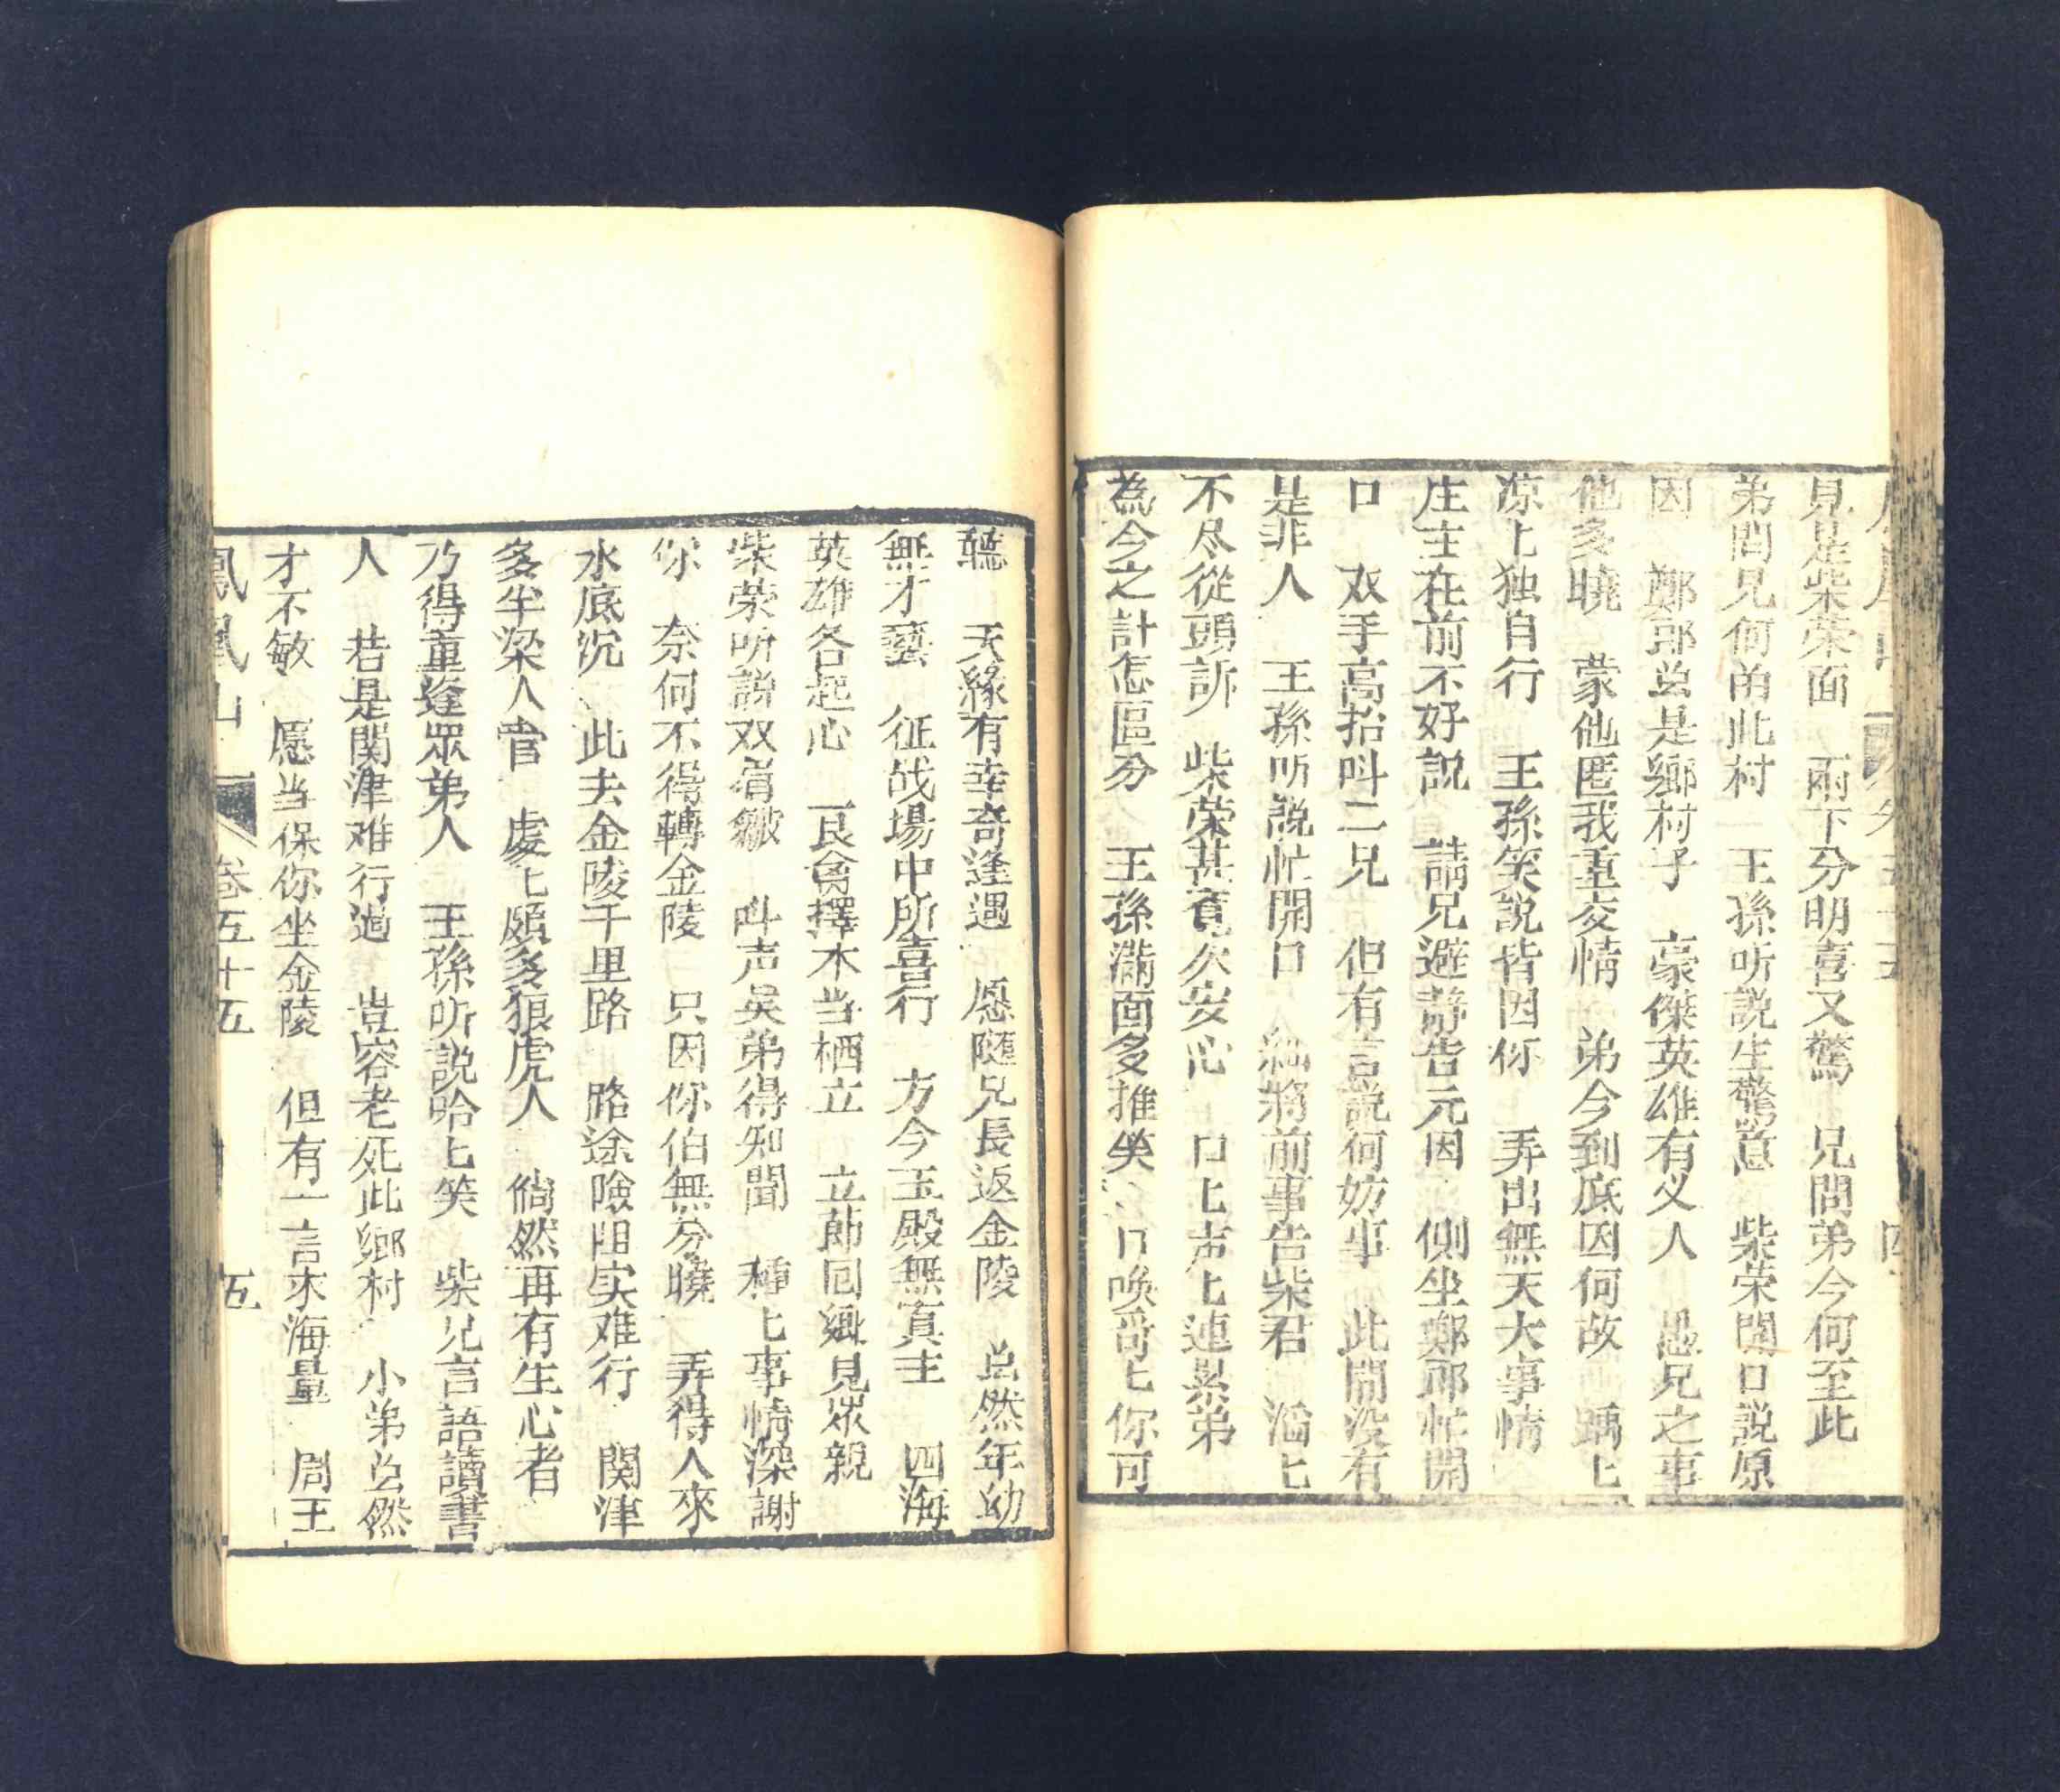 見是柴荣面　兩下分明喜又驚　兄問弟今何至此
弟問兄何的此村　王孫听説生驚意　柴荣開口説原
因　鄭郎虽是鄉村子　豪傑英雄有义人　愚兄之事
他多曉　蒙他匿我重交情　弟今到底因何故　踽匕
凉匕独自行　王孫笑説皆因你　弄出無天大事情
庄主在前不好説　請兄避静告元因　側坐鄭郎忙開
口　双手高抬呌二兄　但有言説何妨事　此間没有
是非人　王孫听説忙開口　細將前事告柴君　滔匕
不尽從頭訴　柴荣甚覚欠安心　口匕声匕連累弟
為今之計怎區分　王孫滿面多推笑　口喚哥匕你可
聽　天緣有幸奇逢遇　愿随兄長返金陵　虽然年幼
無才藝　征战場中所喜行　方今玉殿無真主　四海
英雄各起心　良禽擇木当栖立　立莭囘鄉見众親
柴荣听説双眉皺　呌声吴弟得知聞　種匕事情深謝
你　奈何不得轉金陵　只因你伯無分曉　弄得人來
水底沉　此去金陵千里路　路途險阻实难行　関津
多半梁人官　處匕頗多狼虎人　倘然再有生心者
乃得重逢眾弟人　王孫听説哈匕笑　柴兄言語讀書
人　若是関津难行過　豈容老死此鄉村　小弟虽然
才不敏　愿当保你坐金陵　但有一言求海量　周王
鳳凰山　卷五十五　五